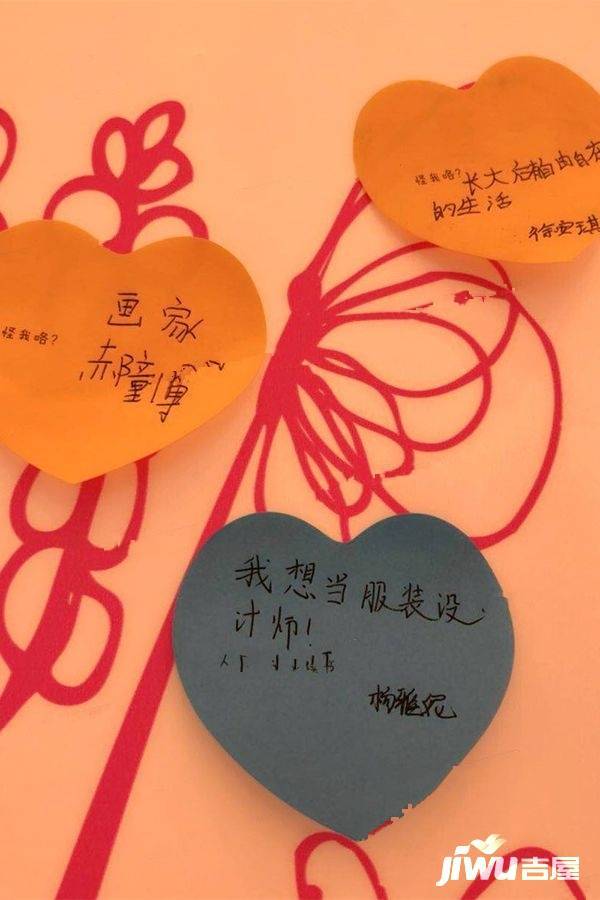 怪我咯?
长大后有自由自在
的生活
徐安琪
画家
怪我咯?
郝瞳博
我想当服装设
计师!
杨雅妮
JIWU吉屋